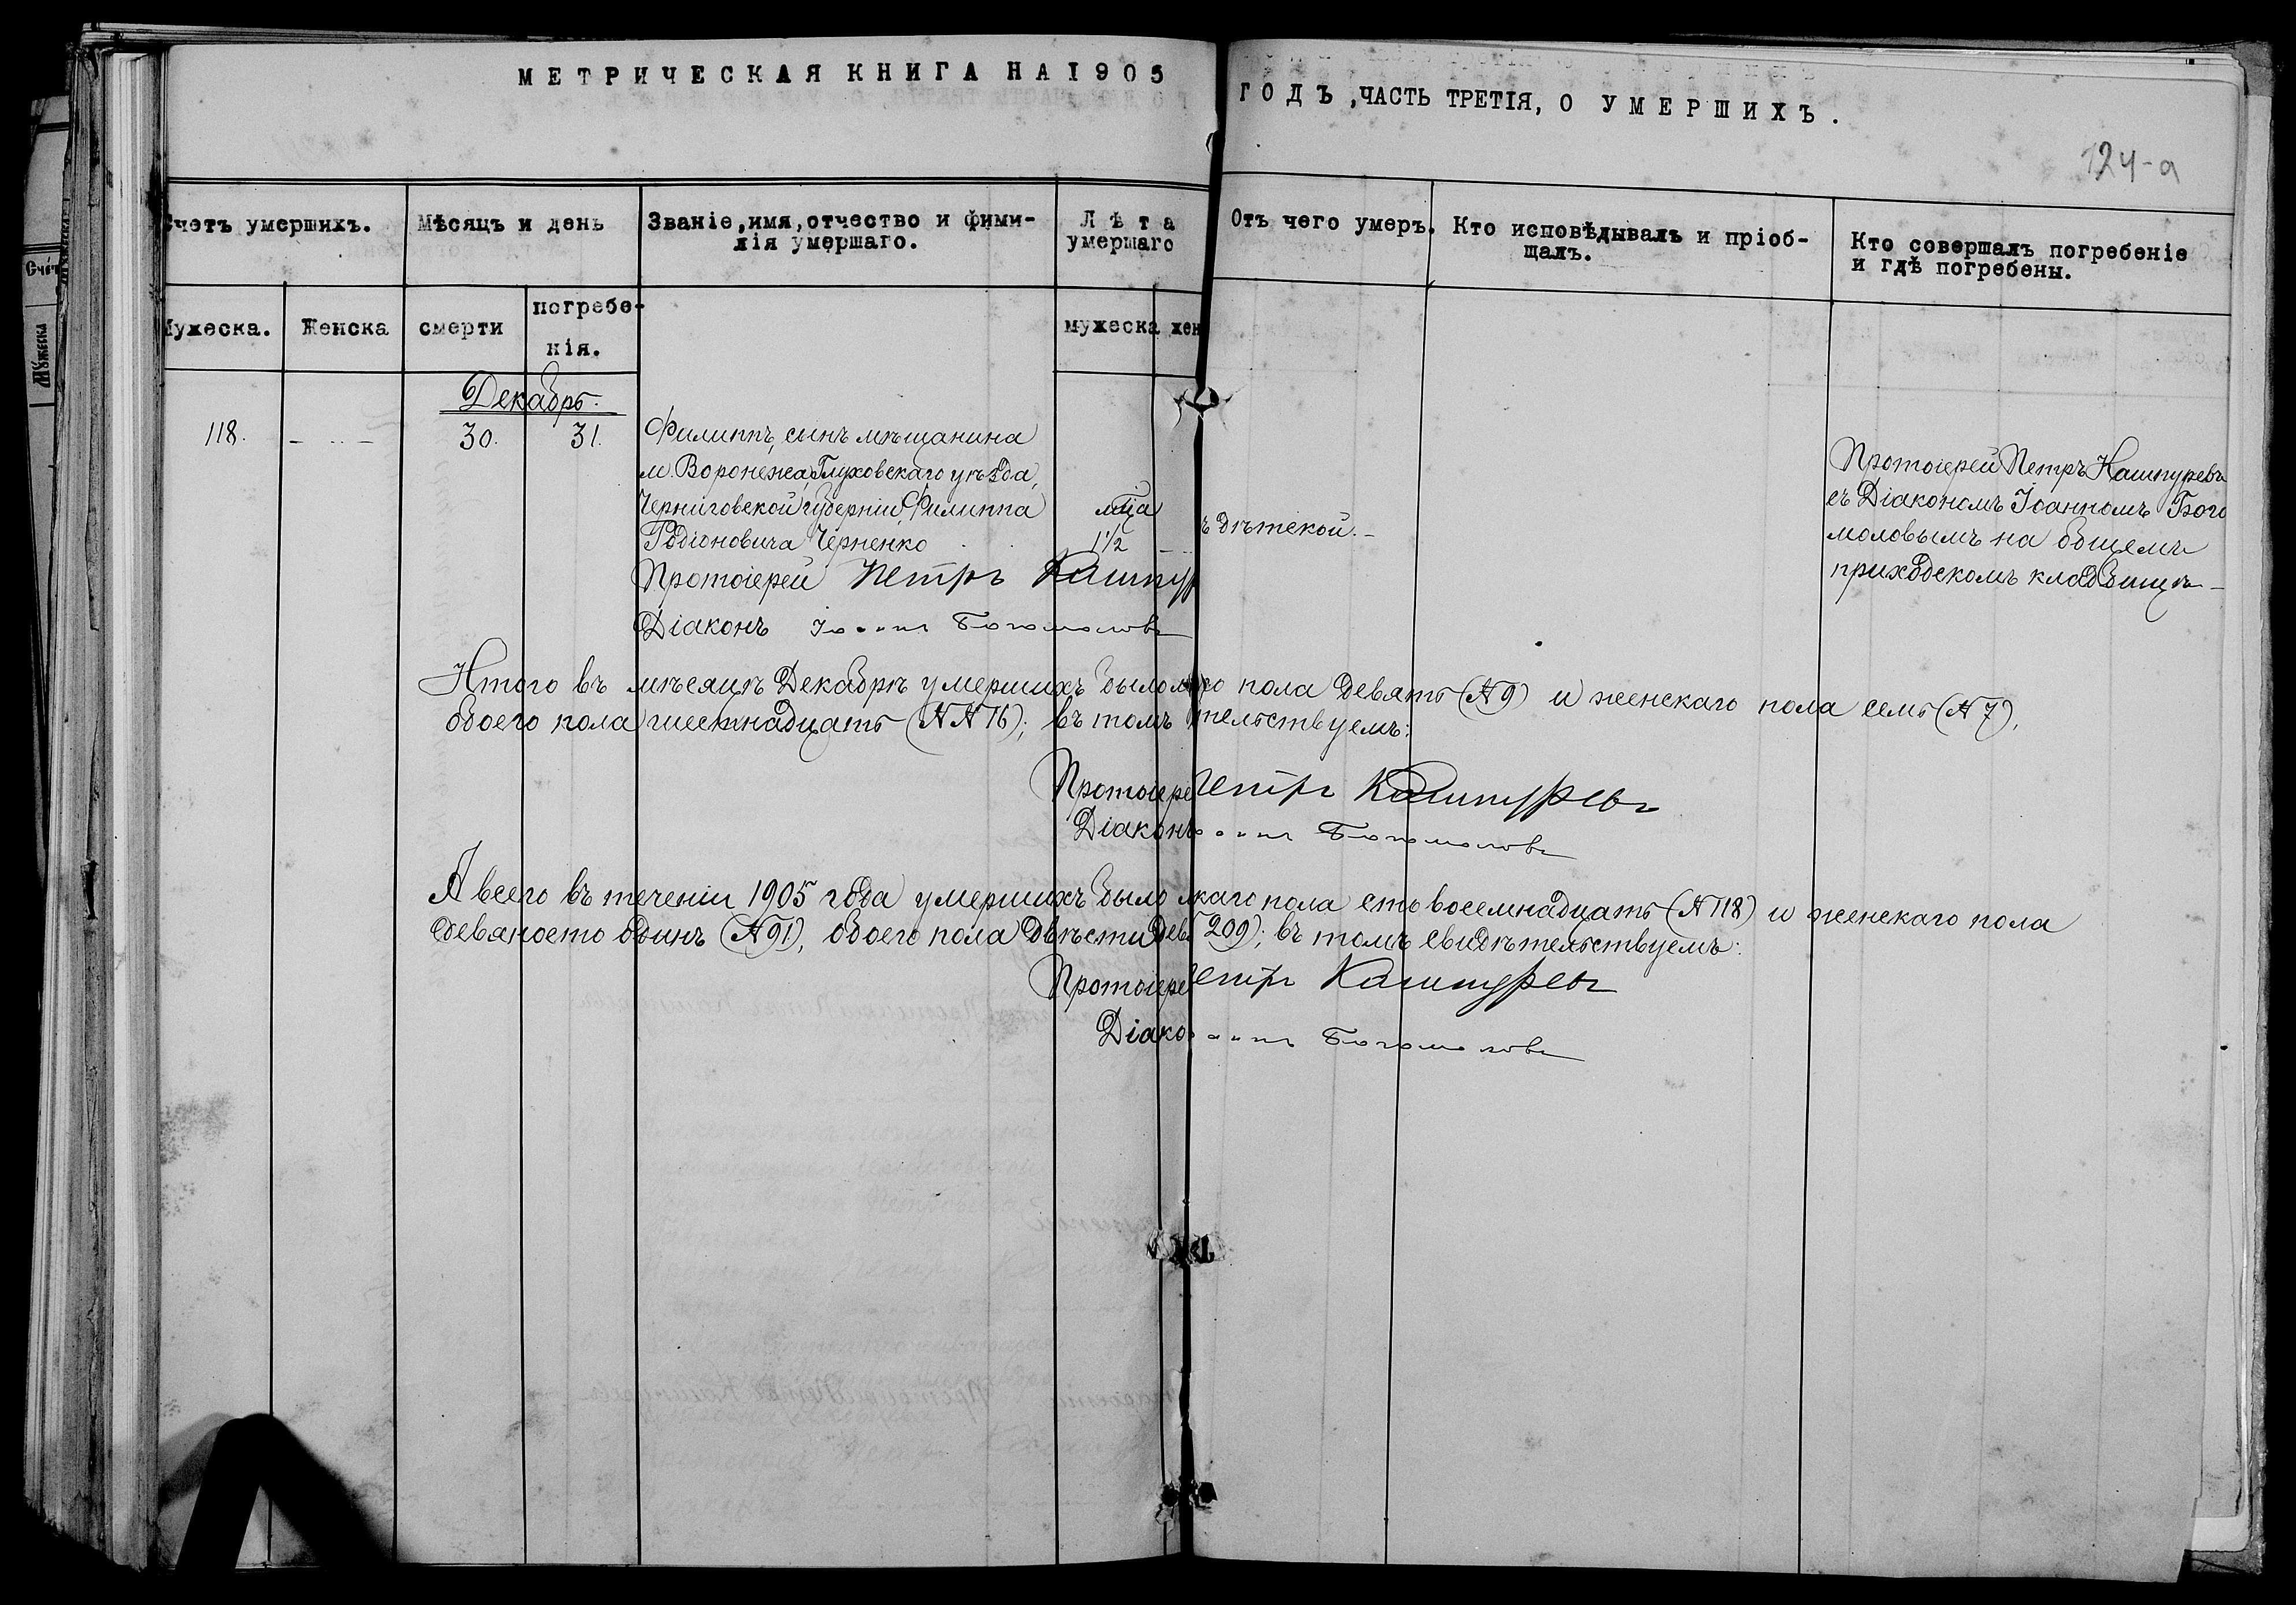 МЕТРИЧЕСКАЯ КНИГА НА 1905 ГОДЪ, ЧАСТЬ ТРЕТІЯ, О УМЕРШИХЪ.
124-а
Счетъ умершихъ.
Мѣсяцъ и день
Званіе, имя, отчество и фими-
лія умершаго.
Лѣта
умершаго
Отъ чего умеръ.
Кто исповѣдывалъ и пріоб-
щалъ.
Кто совершалъ погребеніе
и гдѣ погребены.
Мужеска.
Женска
смерти
погребе-
нія.
мужеска
жен
Счет
Мужеска
Декабрь.
118.
30.
31.
Филиппъ, сынъ мѣщанина
м. Воронежа, Глуховскаго уѣзда,
Черниговской губерніи, Филиппа
Родіоновича Черненко
мца
1 1/2
ъ дѣтской. –
Протоіерей Петръ Кашпуревъ
съ Діакономъ Іоанномъ Бого
моловымъ на общемъ
приходскомъ кладбищѣ –
Протоіерей Петръ Кашпур
Діаконъ Іоаннъ Богомоловъ
Итого въ мѣсяцѣ Декабрѣ умершихъ было м го пола девять (№ 9) и женскаго пола семь (№ 7),
обоего пола шестнадцать (№№ 16); въ томъ тельствуемъ:
Протоіере Петръ Кашпуревъ
Діаконъ оаннъ Богомоловъ
А всего въ теченіи 1905 года умершихъ было м каго пола сто восемнадцать (№ 118) и женскаго пола
девяносто одинъ (№ 91), обоего пола двѣсти дев 209); въ томъ свидѣтельствуемъ:
Протоіере етръ Кашпуревъ
Діако оаннъ Богомоловъ